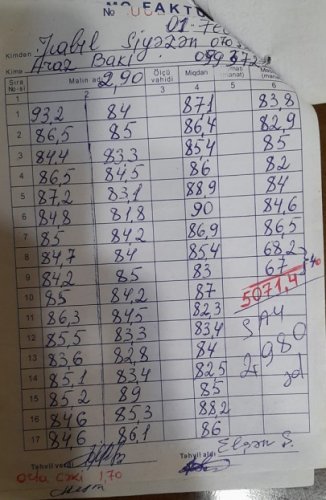 № FAKTU
01-
Kimdən Kabil Siyəzən
Kimə Araz Bakı
Sıra №-si Malın 2,90 Ölçü vahidi Miqdarı
1 2 3 4 5 6
1 93,2 84 871 83,8
2 86,5 85 86,4 82,9
3 84,4 83,3 854 85
4 86,5 84,5 86 82
5 87,2 83,1 88,9 84
6 84,8 81,8 90 84,6
7 85 84,2 86,9 86,5
8 84,7 84 85,4 68,2
9 84,2 85 83 67
10 85 84,2 87 5071,4
11 86,3 84,5 82,3 SAY
12 85,5 83,3 83,4
13 83,6 82,8 84 2980
14 85,1 83,4 825
15 85,2 89 85
16 84,6 85,3 882
17 84,6 86,1 86
Təhvil verdi Təhvil aldı Elşən Ş.
Orta çəki 1,70